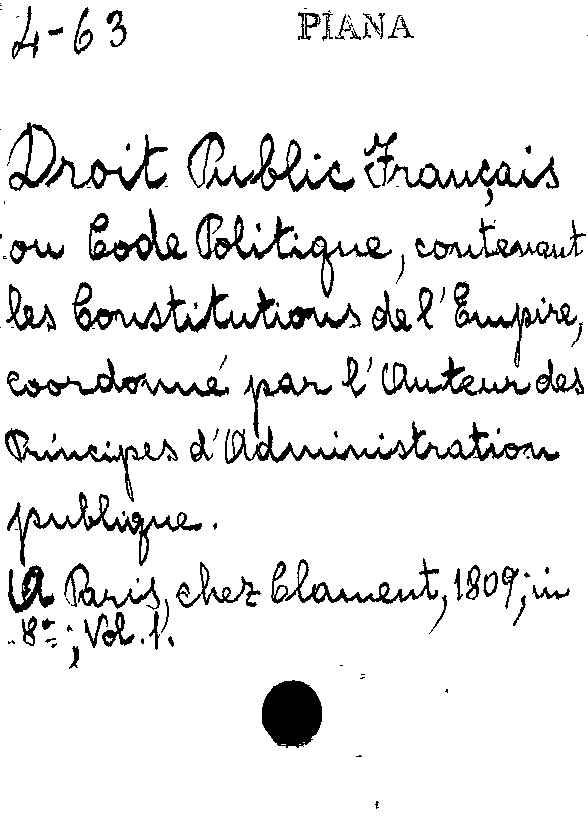 4-63 PIANA
Droit Public Français
ou Code Politique, contenant
les Constitutions de l'Empire,
coordonné par l'Auteur des
Principes d'Administration
publique.
A Paris, chez Clament, 1809; in
8º; Vol. 1.